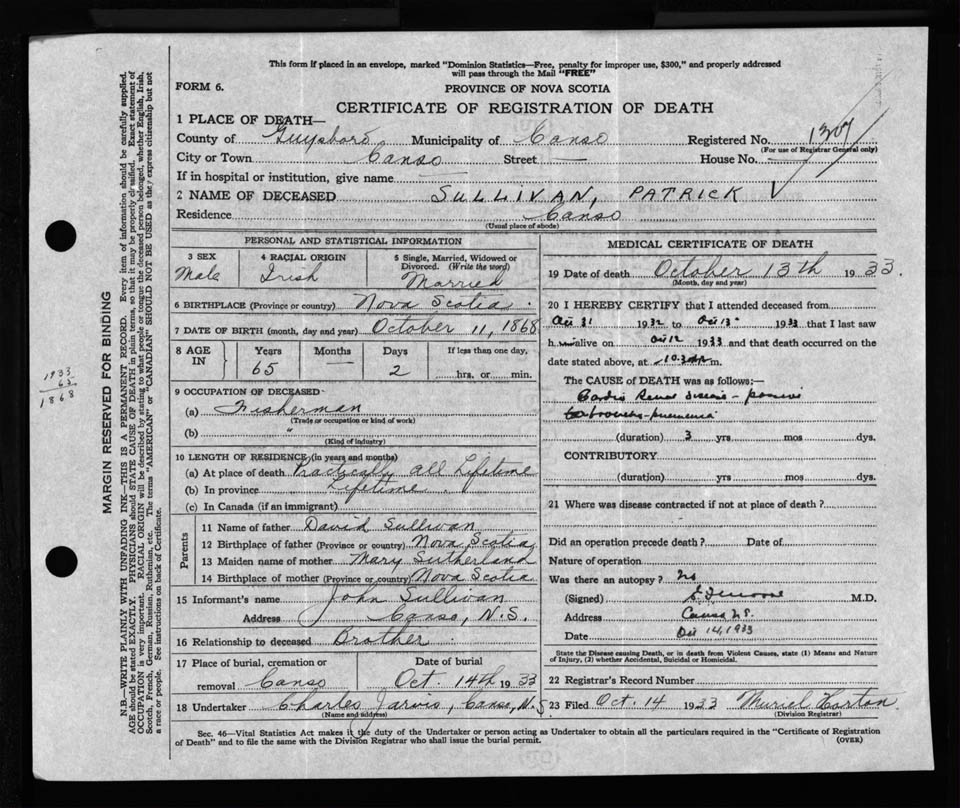 This form if placed in an envelope, marked "Dominion Statistics—Free, penalty for improper use, $300," and properly addressed
will pass through the Mail "FREE"
FORM 6.
PROVINCE OF NOVA SCOTIA
CERTIFICATE OF REGISTRATION OF DEATH
1 PLACE OF DEATH—
County of Guysboro Municipality of Canso Registered No. 1307
(For use of Registrar General only)
City or Town Canso Street — House No. —
If in hospital or institution, give name —
2 NAME OF DECEASED SULLIVAN, PATRICK
Residence Canso
(Usual place of abode)
PERSONAL AND STATISTICAL INFORMATION
3 SEX
Male
4 RACIAL ORIGIN
Irish
5 Single, Married, Widowed or
Divorced. (Write the word)
Married
6 BIRTHPLACE (Province or country) Nova Scotia.
7 DATE OF BIRTH (month, day and year) October 11, 1868
8 AGE IN
Years Months Days If less than one day,
65 — 2 hrs. or min.
9 OCCUPATION OF DECEASED
(a) Fisherman
(Trade or occupation or kind of work)
(b) "
(Kind of industry)
10 LENGTH OF RESIDENCE (in years and months)
(a) At place of death Practically all Lifetime
(b) In province Lifetime.
(c) In Canada (if an immigrant)
Parents
11 Name of father David Sullivan
12 Birthplace of father (Province or country) Nova Scotia
13 Maiden name of mother Mary Sutherland
14 Birthplace of mother (Province or country) Nova Scotia
15 Informant's name John Sullivan
Address Canso, N.S.
16 Relationship to deceased Brother
17 Place of burial, cremation or
removal Canso
Date of burial
Oct. 14th 1933
18 Undertaker Charles Jarvis, Canso, N.S.
(Name and address)
MEDICAL CERTIFICATE OF DEATH
19 Date of death October 13th 1933.
(Month, day and year)
20 I HEREBY CERTIFY that I attended deceased from
1932 to 1933 that I last saw
h alive on 1933 and that death occurred on the
date stated above, at m.
The CAUSE OF DEATH was as follows:—
Cardio Renal disease -
broncho-pneumonia
(duration) 3 yrs mos dys.
CONTRIBUTORY
(duration) yrs. mos. dys.
21 Where was disease contracted if not at place of death?
Did an operation precede death? Date of
Nature of operation
Was there an autopsy? no
(Signed) M.D.
Address Canso N.S.
Date Oct 14, 1933
State the Disease causing Death, or in death from Violent Causes, state (1) Means and Nature
of Injury, (2) whether Accidental, Suicidal or Homicidal.
22 Registrar's Record Number
23 Filed Oct. 14 1933 Muriel Horton
(Division Registrar)
Sec. 46—Vital Statistics Act makes it the duty of the Undertaker or person acting as Undertaker to obtain all the particulars required in the "Certificate of Registration
of Death" and to file the same with the Division Registrar who shall issue the burial permit.
(OVER)
MARGIN RESERVED FOR BINDING
N.B.—WRITE PLAINLY WITH UNFADING INK—THIS IS A PERMANENT RECORD. Every item of information should be carefully supplied.
AGE should be stated EXACTLY. PHYSICIANS should STATE CAUSE OF DEATH in plain terms, so that it may be properly classified. Exact statement of
OCCUPATION is very important. RACIAL ORIGIN will be described by stating to what people or tongue the deceased person belonged, whether English, Irish,
Scotch, French, German, Russian, Ruthenian, etc. The terms "AMERICAN" or "CANADIAN" SHOULD NOT BE USED as they express citizenship but not
a race or people. See instructions on back of Certificate.
1933
65
1868